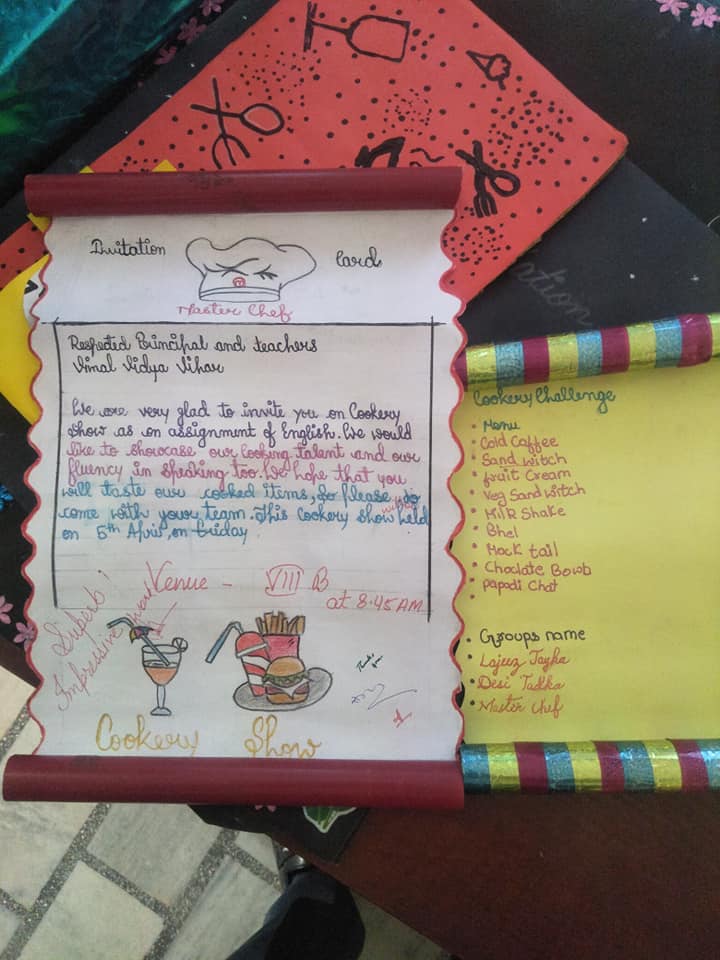 Invitation Card
Master Chef
Respected Principal and teachers
Vimal Vidya Vihar
We are very glad to invite you on Cookery
Show as an assignment of English. We would
like to showcase our cooking talent and our
fluency in speaking too. We hope that you
will taste our cooked items, So please do
come with your team. This Cookery Show will be held
on 5th April, on Friday
Venue - VIII B
at 8:45 AM
Superb!
Impressive
Cookery Show
Cookery Challenge
Menu
Cold Caffee
Sand witch
fruit Cream
Veg Sand witch
Milk Shake
Bhel
Mock tail
Choclate Bowb
Papadi Chat
Groups name
Lajeez Tayka
Desi Tadka
Master Chef